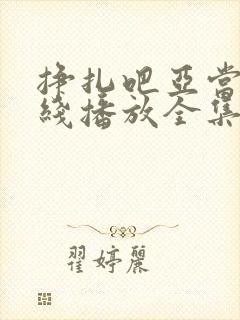 挣扎吧亚当
线播放全集
翟婷丽